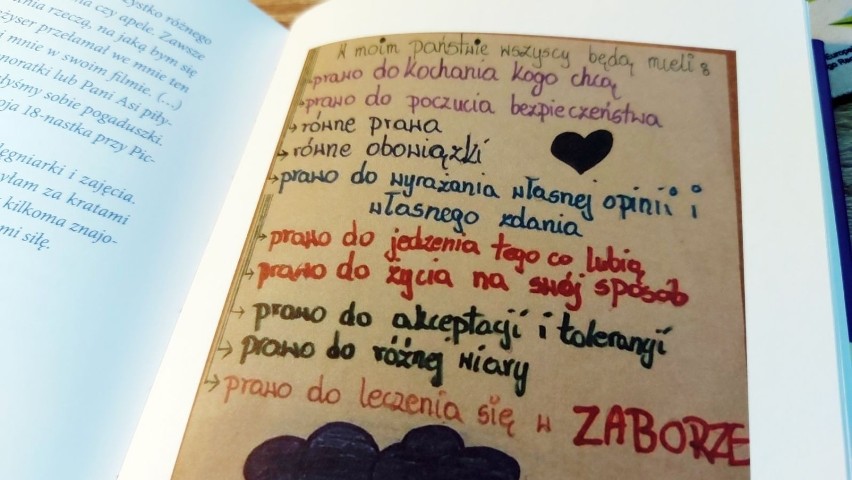 zystko różnego
czy apele. Zawsze
rzeczą, na jaką bym się
żyser przełamał we mnie ten
mnie w swoim filmie. (...)
noratki lub Pani Asi piły-
dyśmy sobie pogaduszki.
oja 18-nastka przy Pic-
lęgniarki i zajęcia.
yłam za kratami
kilkoma znajo-
mi siłę.
W moim państwie wszyscy będą mieli :
→prawo do kochania kogo chcą
→prawo do poczucia bezpieczeństwa
→równe prawa
→równe obowiązki
→prawo do wyrażania własnej opinii i
własnego zdania
→prawo do jedzenia tego co lubią
→prawo do życia na swój sposób
→ prawo do akceptacji i tolerancji
→ prawo do różnej wiary
→ prawo do leczenia się w ZABORZE